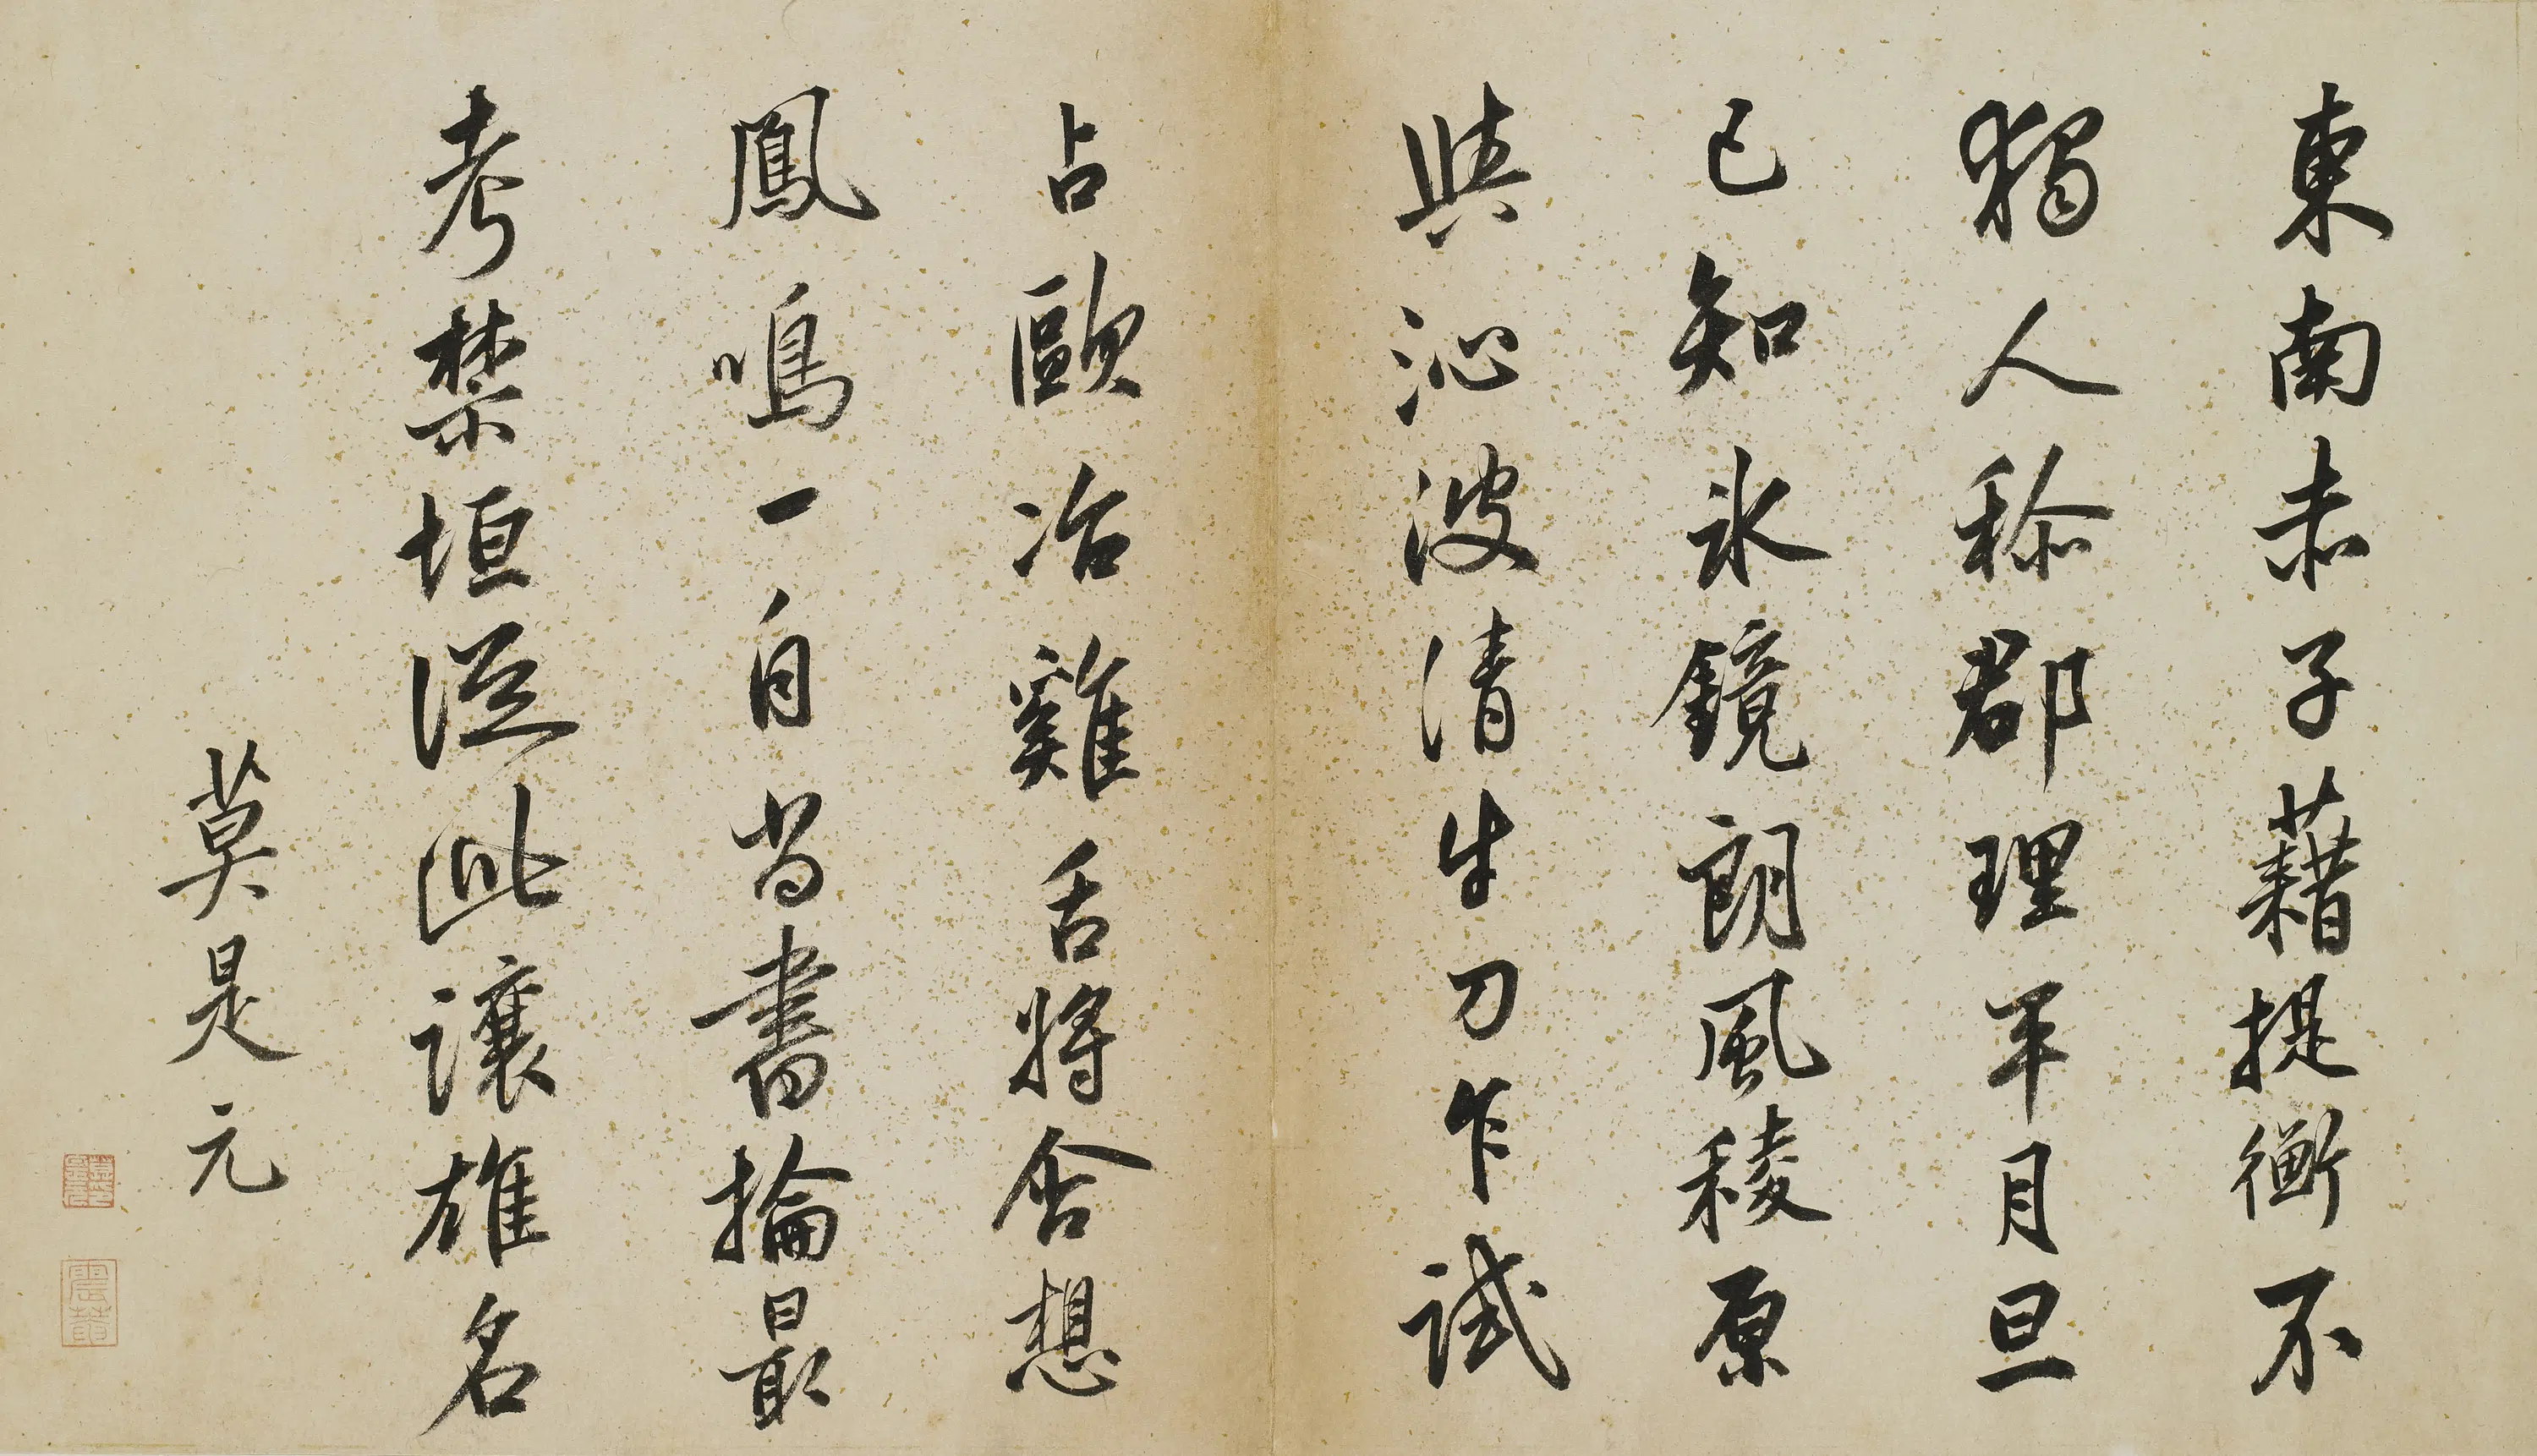 東南赤子藉提衡不
獨人稱郡理平月旦
已知冰鏡朗風稜原
與沁波清牛刀乍試
占歐冶雞舌將含想
鳳鳴一自尚書掄最
考禁垣從此讓雄名
莫是元